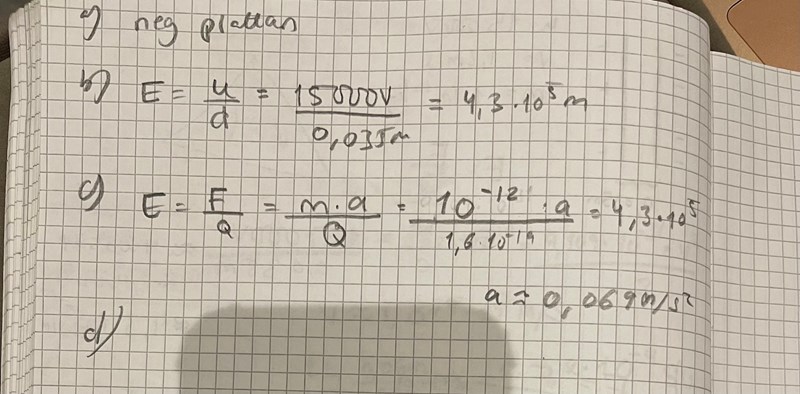 a) neg plattan
b) E = u/d = 15000V/0,035m = 4,3·10⁵m
c) E = F/Q = m·a/Q = 10⁻¹²·a/1,6·10⁻¹⁹ = 4,3·10⁵
a ≈ 0,069m/s²
d)